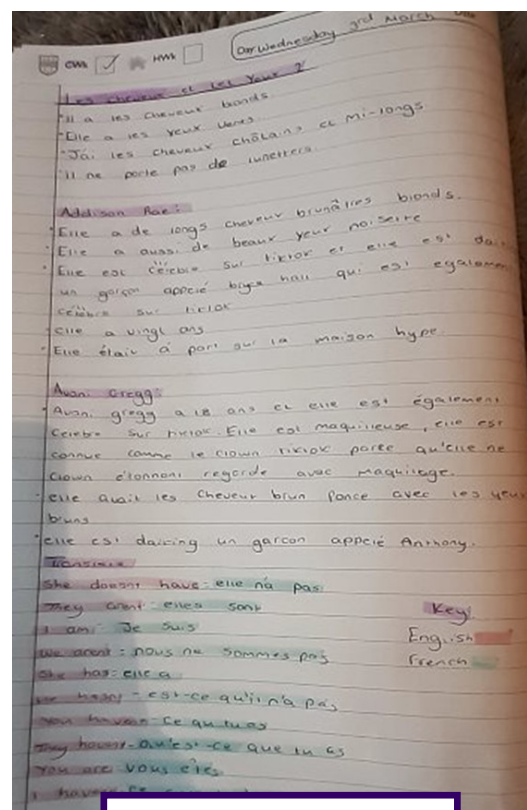 CWK HWK
Wednesday 3rd March
Les cheveux et les Yeux 2
Il a les cheveux blonds.
Elle a les yeux verts.
J'ai les cheveux châtains et mi-longs
il ne porte pas de lunetters.
Addison Rae:
Elle a de longs cheveux brunâtres blonds.
Elle a aussi de beaux yeux noisette
Elle est célèbre sur tiktok et elle est
un garçon appelé bryce hall qui est egalement
célèbre sur tiktok
elle a vingt ans
Elle était à part sur la maison hype.
Avani Gregg:
Avani gregg a 18 ans et elle est également
celebre sur tiktok. Elle est maquilleuse, elle est
connue comme le clown tiktok parce qu'elle ne
clown étonnant regarde avec maquillage.
elle avait les cheveux brun fonce avec les yeux
bruns
elle est daiting un garcon appelé Anthony.
She doesnt have: elle n'a pas
They arent: elles sont
I am: Je suis
Key:
English
We arent: nous ne sommes pas
French
She has: elle a
He hasnt - est-ce qu'il n'a pas
You havent - Ce qu tu as
They havent - Qu'est-ce que tu as
You are: vous êtes
I havent